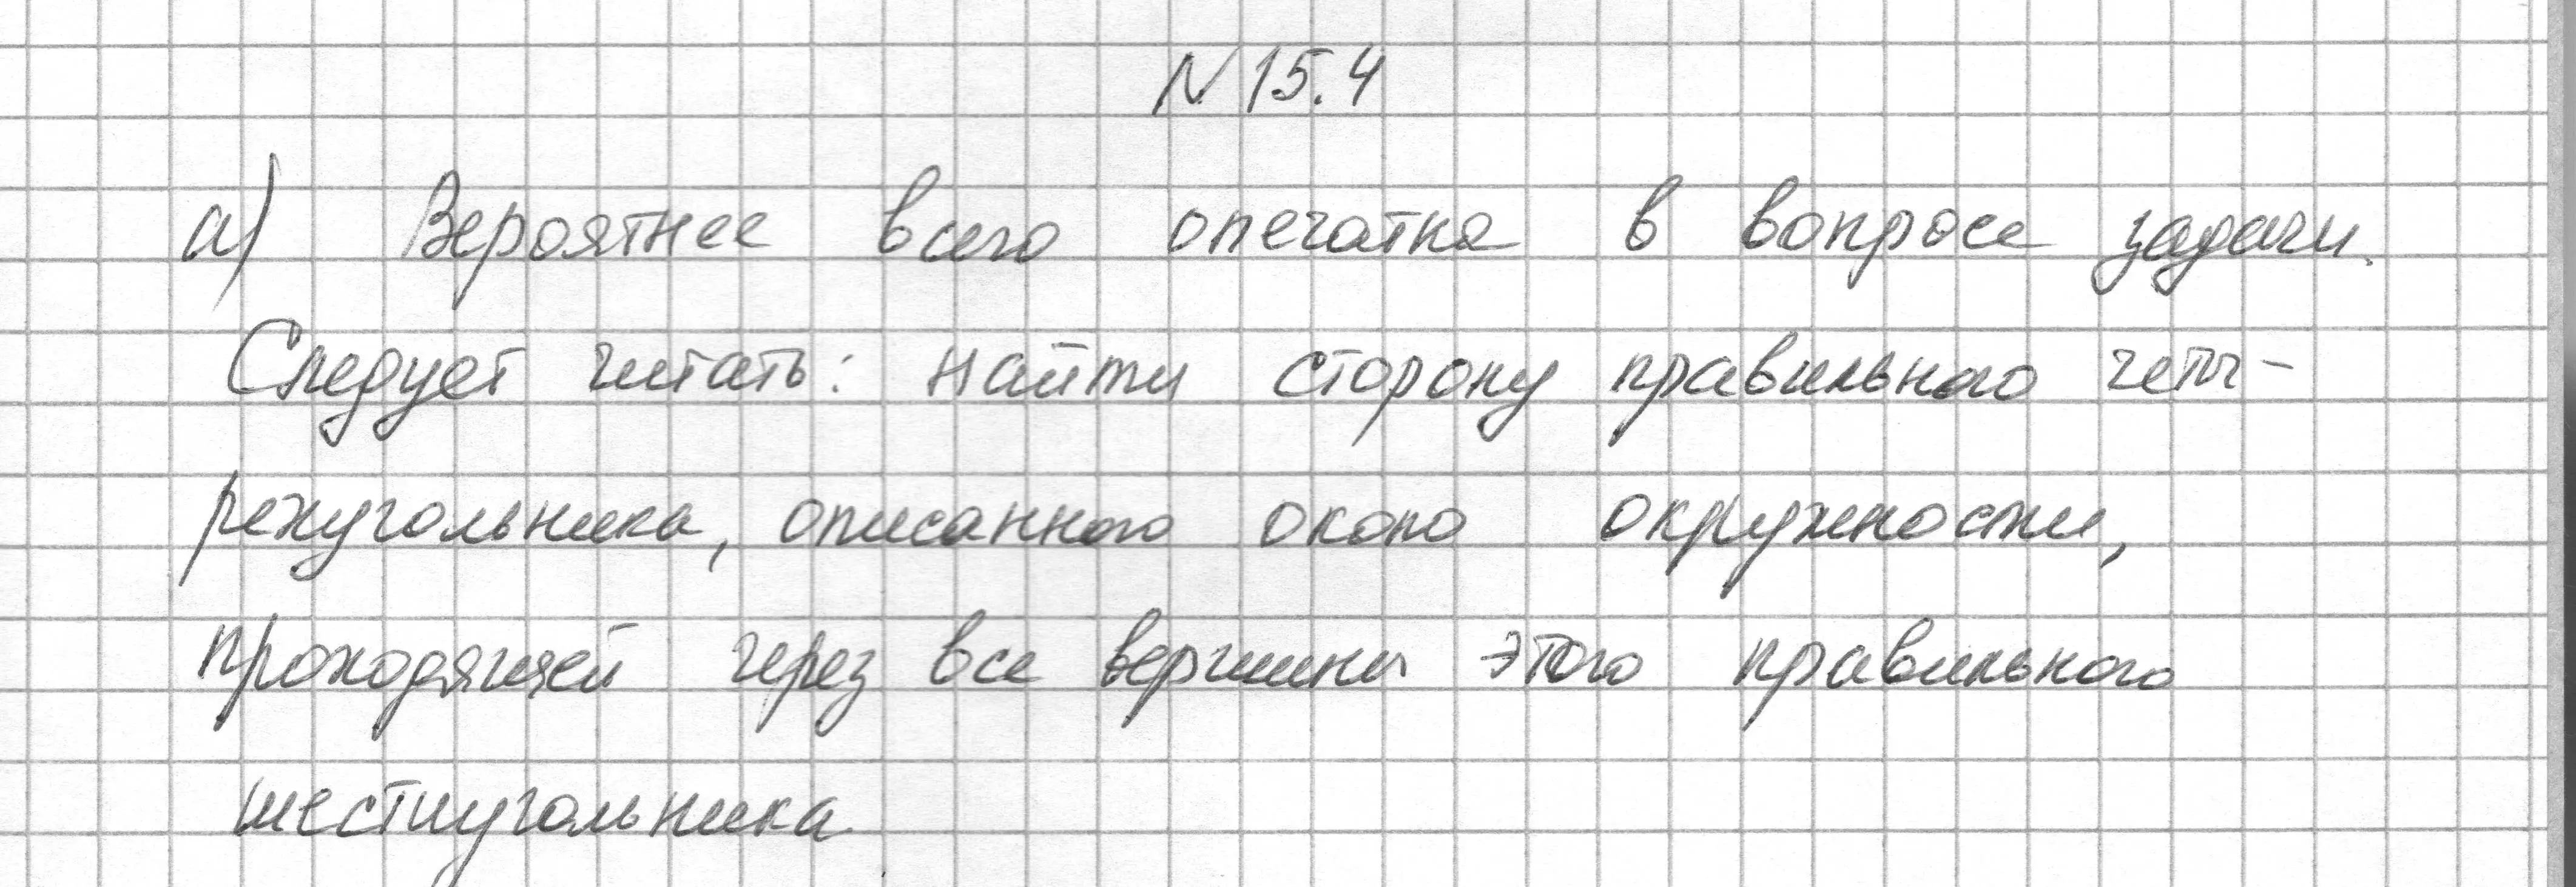 N 15.4
а) Вероятнее всего опечатка в вопросе задачи.
Следует читать: найти сторону правильного четы-
рехугольника, описанного около окружности,
проходящей через все вершины этого правильного
шестиугольника